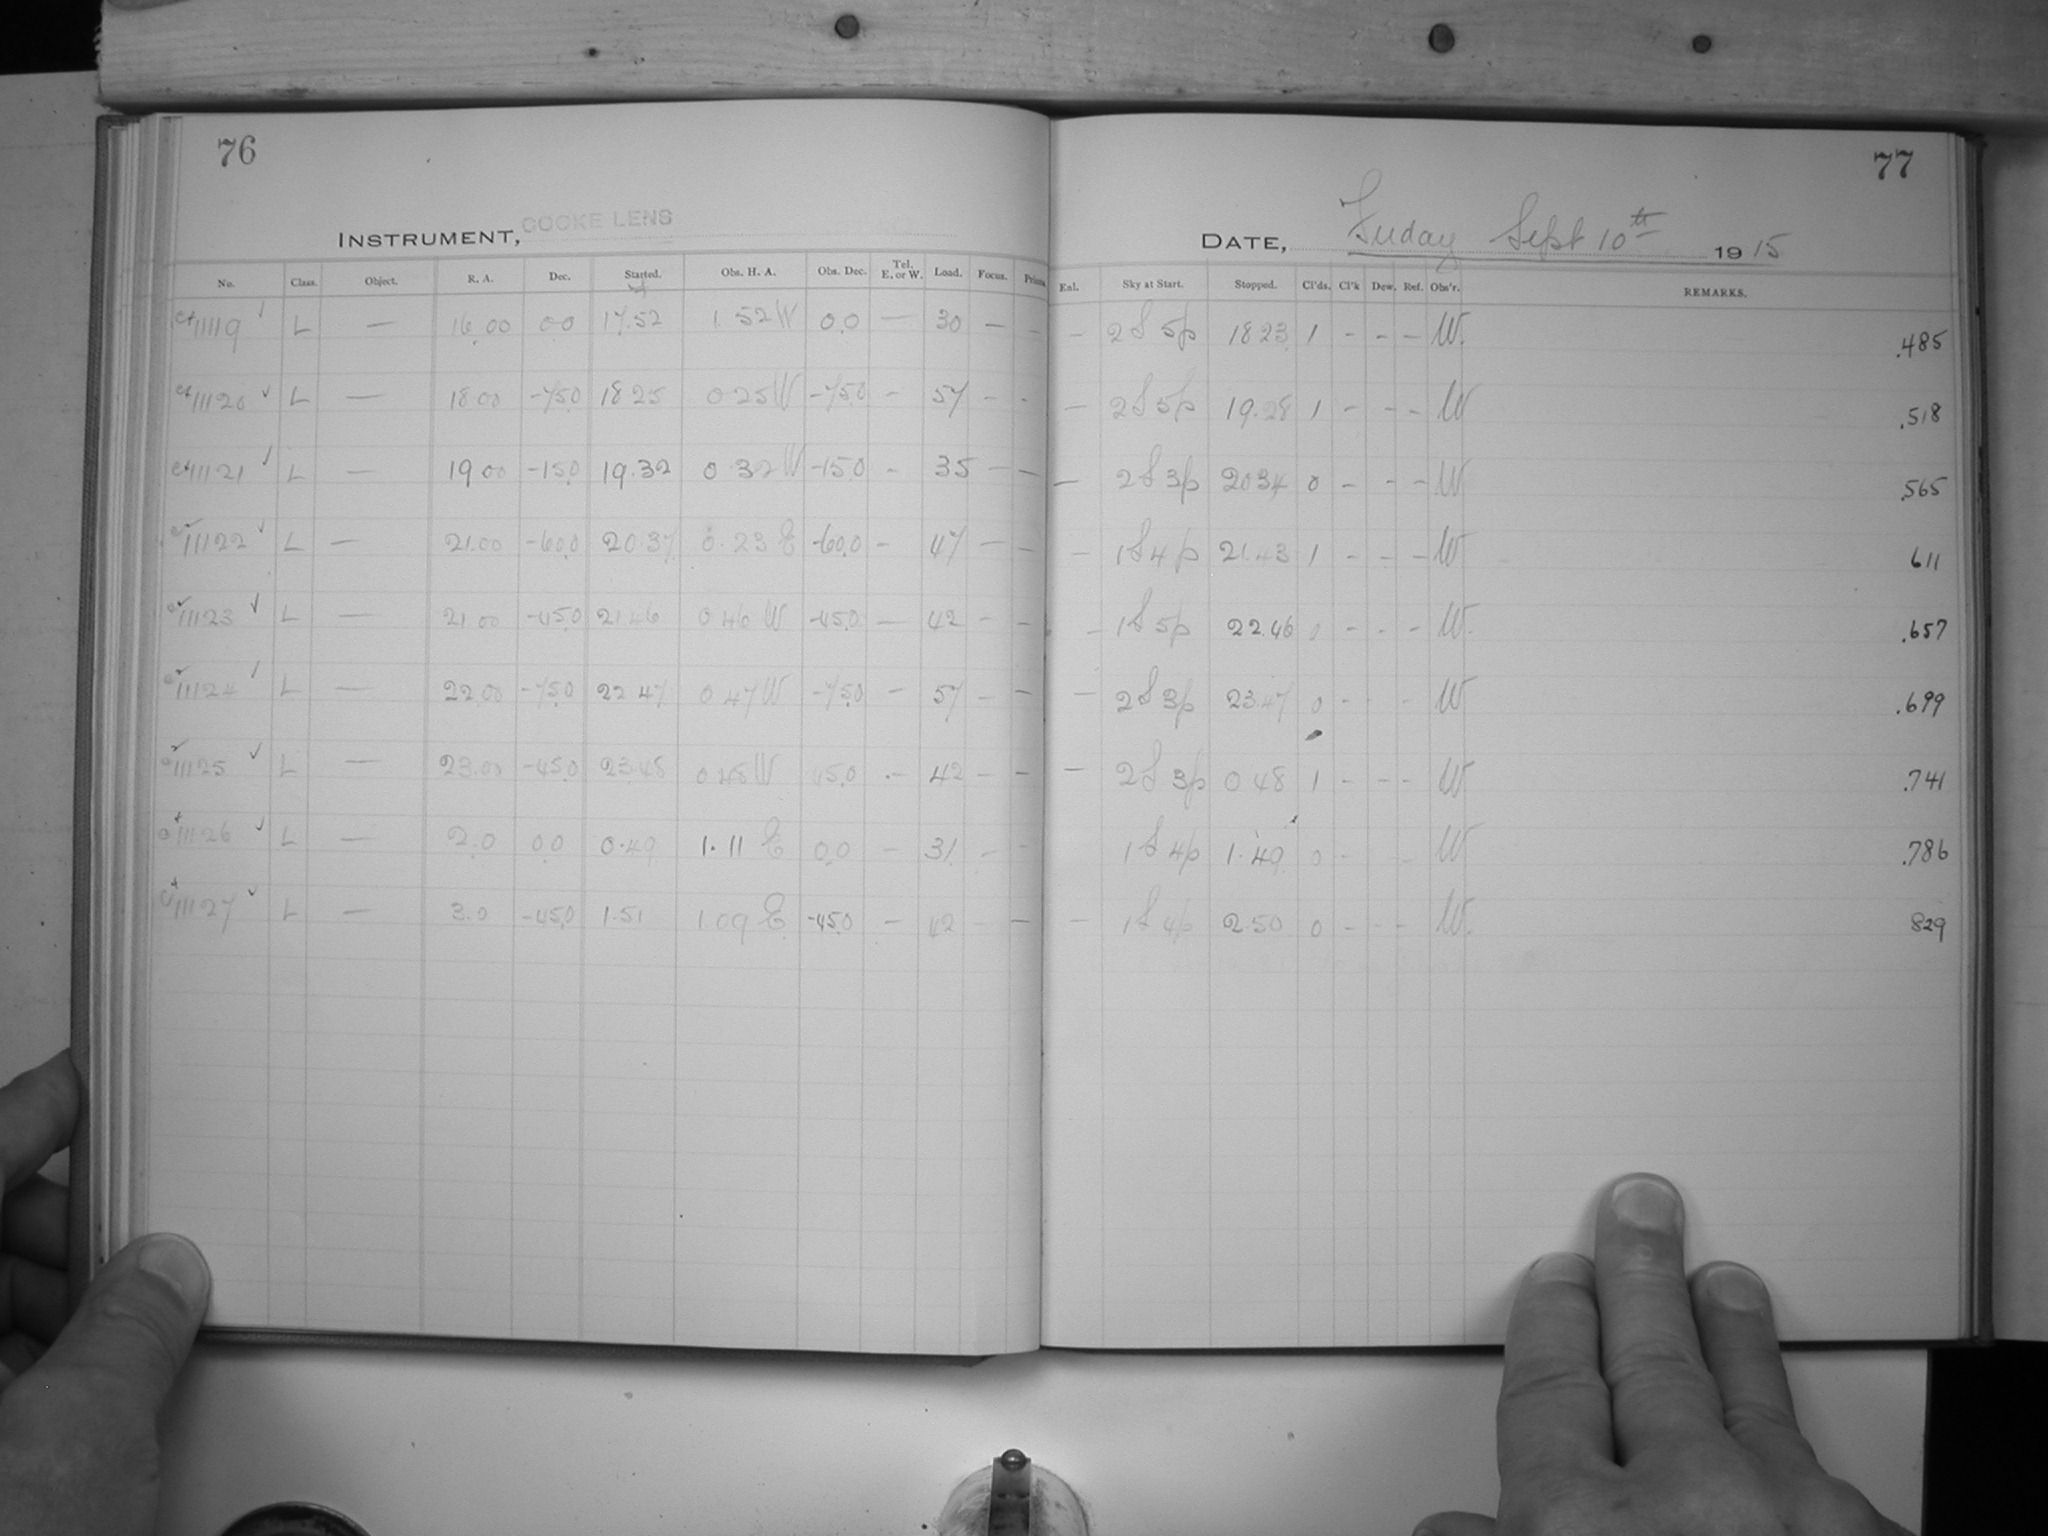 76
INSTRUMENT, COOKE LENS
No. Class. Object. R. A. Dec. Started. Obs. H. A. Obs. Dec. Tel. E. or W. Load. Focus.
11119 L — 16.00 0.0 17.52 1.52 W 0.0 — 30 — —
11120 ✓ L — 18 00 -75.0 18 25 0 25 W -75.0 - 57 - -
11121 L — 19 00 -15.0 19.32 0.32 W -15.0 - 35 — —
11122 ✓ L — 21.00 -60.0 20.37 0.23 E -60.0 - 47 — —
11123 ✓ L — 21 00 -45.0 21.46 0 46 W -45.0 — 42 - -
11124 L — 22 00 -75.0 22 47 0 47 W -75.0 — 57 - -
11125 ✓ L — 23.00 -45.0 23.48 0 48 W 45.0 - 42 - -
11126 ✓ L — 2.0 0.0 0.49 1.11 E 0.0 — 31 - -
11127 ✓ L — 3.0 -45.0 1.51 1.09 E -45.0 — 42 - —
77
DATE, Friday Sept 10th 1915
Enl. Sky at Start. Stopped. Cl'ds. Cl'k Dew. Ref. Obs'r. REMARKS.
— 2S 5p 18 23 1 - - - W. .485
— 2S 5p 19.28 1 - - - W .518
— 2S 3p 20 34 0 - - - W .565
— 1S 4p 21.43 1 - - - W 611
— 1S 5p 22.46 0 - - - W. .657
— 2S 3p 23.47 0 - - W .699
— 2S 3p 0 48 1 - - - W .741
1S 4p 1.49 0 - - W .786
— 1S 4p 2.50 0 - - - W. 829